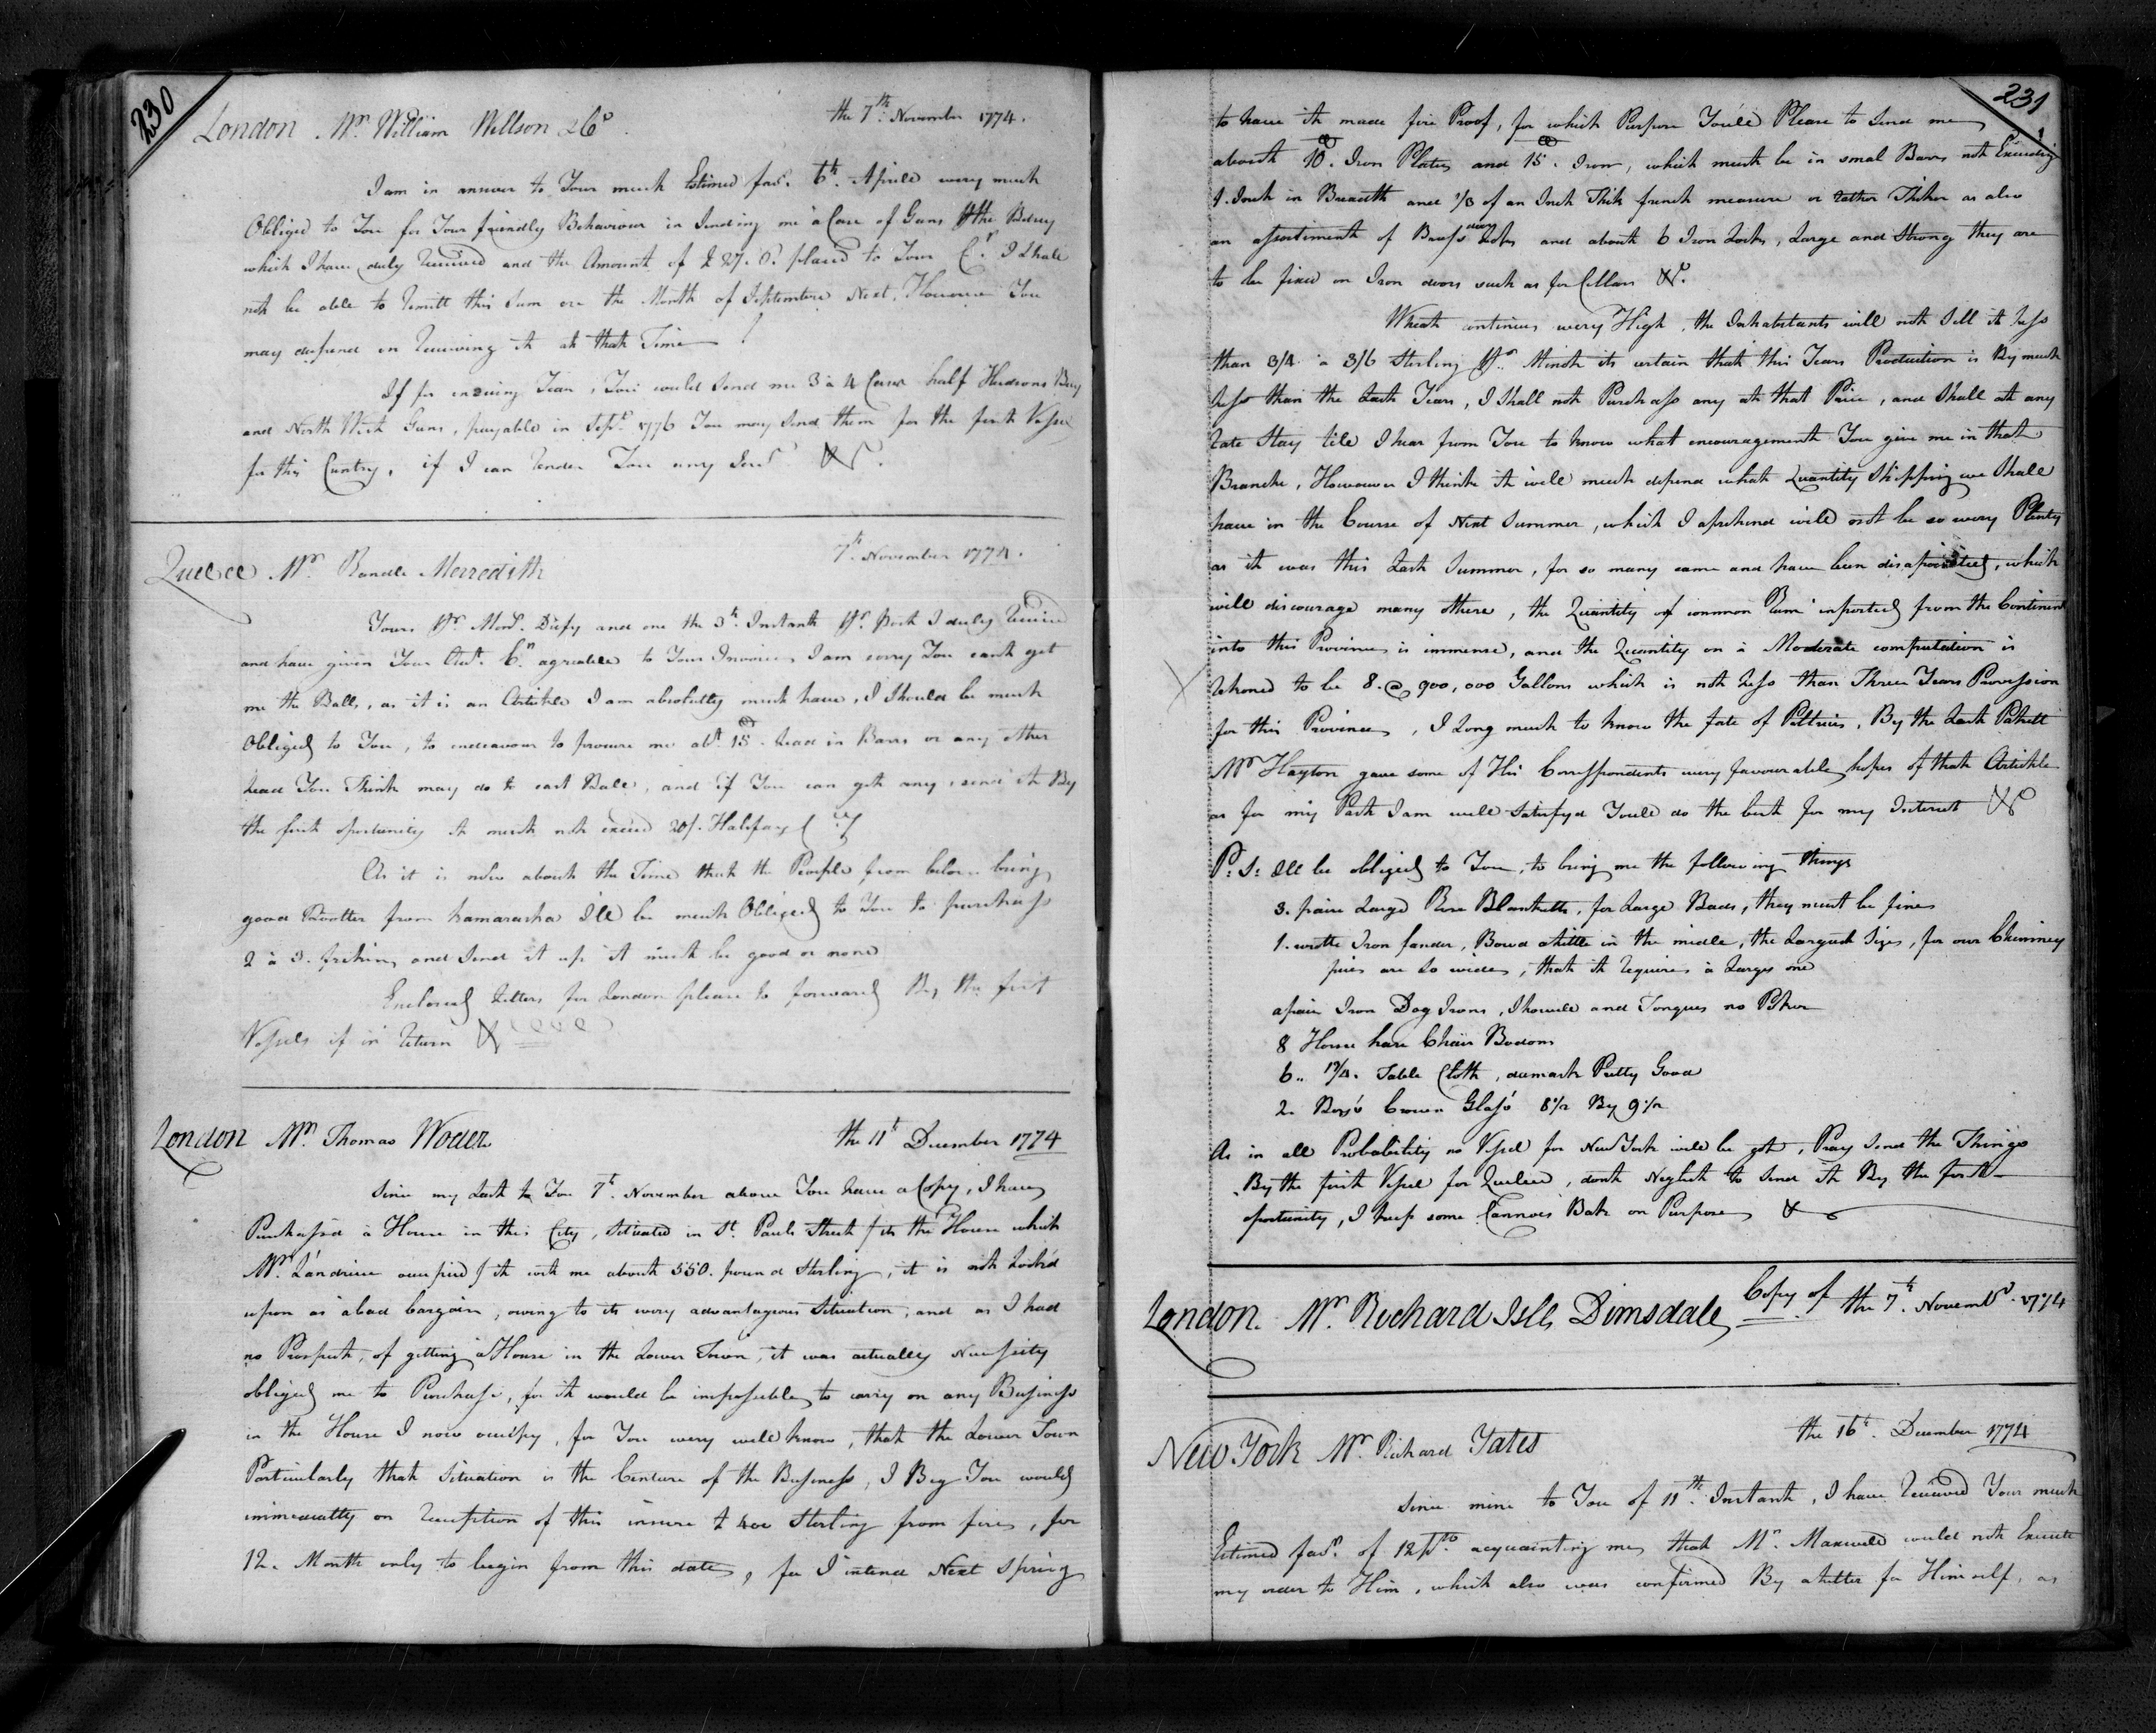 230
London Mr. William Willson & Co. the 7th. November 1774.
I am in answer to Your much Estimed favr. 6th. Aprill wery much
Obliged to You for Your friendly Behaviour in Sending me a Case of Guns the
which I have duly Received and the Amount of £ 27. 8. placed to Your Cr. I Shall
not be able to Remitt this Sum ere the Month of Septembre Next, However You
may depend on Receiving it at that Time
If for ensuing Year, You would Send me 3 à 4 Cases half Hudsons Bay
and North West Guns, payable in Sepr. 1776 You may Send them for the first Vessel
for this Cuntry, if I can Render You any Servs &c.
Quebec Mr. Randle Merredith 7th. November 1774.
Yours pr. Monr. and one the 3th. Instant pr. Post I duly Received
and have given Your Acct. Cr. agreable to Your Invoice, I am sorry You cant get
me the Balls, as it is an Artickle I am absoluttly must have, I Should be much
Obliged to You, to endeavour to procure me abt. 15 Lead in Barrs or any other
Lead You Think may do to cast Balls, and if You can get any, send it By
the first oportunity it must not exceed 20/. Halifax
As it is now about the Time that the People from below bring
good from Kamaraska I'll be much Obliged to You to purchass
2 à 3. firkins, and Send it up it must be good or none
Enclosed Letters for London please to forward By the first
Vessels if in Return &
London Mr. Thomas Woder the 11th December 1774
Since my Last to You 7th. November above You have a Copy, I have
Purchassd à House in this City, Situated in St. Pauls Street / its the House which
Mr. Landrieu occupied / it cost me about 550. pound Sterling, it is not Look'd
upon as a bad bargain, owing to its wery advantageous Situation, and as I had
no Prospect, of getting à House in the Lower Town, it was actually Nessessity
obliged me to Purchase, for it would be impossible to carry on any Bussiness
in the House I now occupy, for You wery well know, that the Lower Town
Particularly that Situation is the Centure of the Bussiness, I Beg You would
immediattly on Reception of this insure £ 400 Sterling from fire, for
12. Month only to begin from this date, for I intend Next Spring
231
to have it made fire Proof, for which Purpose You'll Please to Send me
about 10. Iron Plates and 15. Iron, which must be in smal Barrs not Exceeding
1. Inch in Breadth and 1/3 of an Inch Thik french measure or rather Thiker as also
an assortiment of Brass door Locks and about 6 Iron Locks, Large and Strong they are
to be fixed on Iron doors such as for Cellars &c.
Wheat continues wery High, the Inhabitants will not Sell it Less
than 3/4 à 3/6 Sterling pr. Minot its certain that this Years Production is By much
Less than the Last Years, I Shall not Purchass any at that Price, and Shall at any
rate Stay till I hear from You to know what encouragement You give me in that
Branche, However I think it will much depend what Quantity Shipping we Shall
have in the Course of Next Summer, which I aprehend will not be so wery Plenty
as it was this Last Summer, for so many came and have been disapointed, which
will discourage many others, the Quantity of common Rum inported from the Continent
into this Province is immense, and the Quantity on a Moderate computation is
Rekoned to be 8. @ 900,000 Gallons which is not Less than Three Years Provission
for this Province, I Long much to know the fate of Peltries, By the Last Pakett
Mr. Hayton gave some of His Correspondents wery favourable hopes of that Artickle
as for my Part I am well Satisfyd You'll do the best for my Interest &c
P: S: I'll be obliged to You, to bring me the following things
3. paire Large Rose Blanketts, for Large Beds, they must be fine
1. wrotte Iron fander, Bowd a little in the midle, the Largest Size, for our Chimney
fires are so wide, that it Requires à Large one
a pair Iron Dog Irons, Showell and Tongues no Poker
8 Horse hare Chair Bodoms
6.. Table Cloth, damask Pretty Good
2. Boxes Crown Glass 8 1/2 By 9 1/2
As in all Probability no Vessel for New York will be got, Pray Send the Things
By the first Vessel for Quebec, dont Neglect to Send it By the first
oportunity, I keep some Cannois Bate on Purpose &
London. Mr. Richard Isll Dimsdale Copy of the 7th. Novembr. 1774
New York Mr. Richard Yates the 16th. December 1774
Since mine to You of 11th. Instant, I have Received Your much
Estimed favr. of 12 acquainting me, that Mr. Maxwell would not Execute
my order to Him, which also was confirmed By a Letter for Himself, as